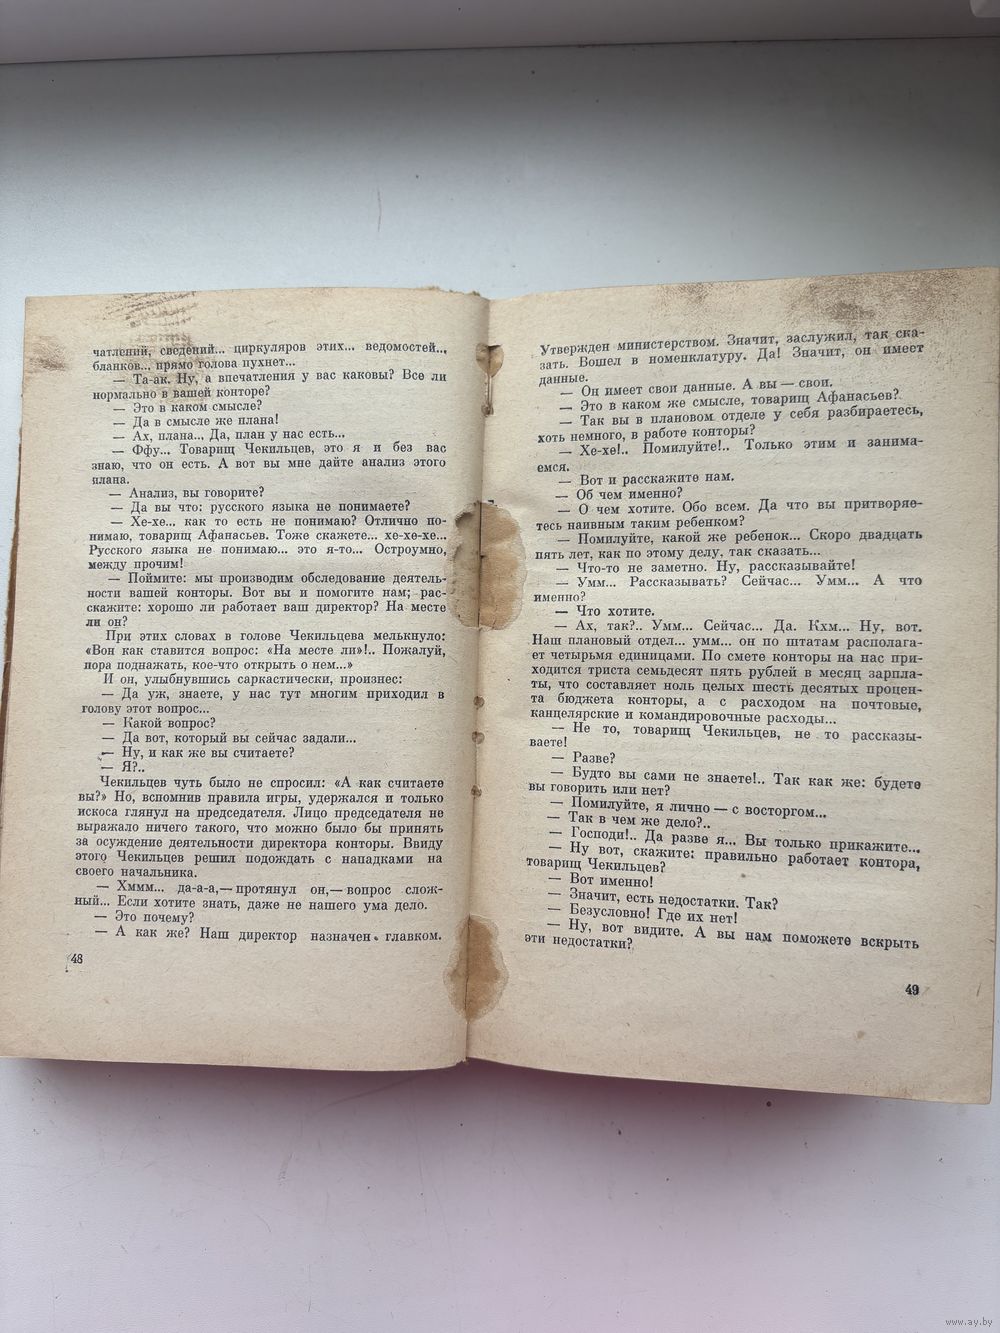 чатлений, сведений... циркуляров этих... ведомостей..,
бланков... прямо голова пухнет...
— Та-ак. Ну, а впечатления у вас каковы? Все ли
нормально в вашей конторе?
— Это в каком смысле?
— Да в смысле же плана!
— Ах, плана... Да, план у нас есть...
— Ффу... Товарищ Чекильцев, это я и без вас
знаю, что он есть. А вот вы мне дайте анализ этого
плана.
— Анализ, вы говорите?
— Да вы что: русского языка не понимаете?
— Хе-хе... как то есть не понимаю? Отлично по-
нимаю, товарищ Афанасьев. Тоже скажете... хе-хе-хе...
Русского языка не понимаю... это я-то... Остроумно,
между прочим!
— Поймите: мы производим обследование деятель-
ности вашей конторы. Вот вы и помогите нам; рас-
скажите: хорошо ли работает ваш директор? На месте
ли он?
При этих словах в голове Чекильцева мелькнуло:
«Вон как ставится вопрос: «На месте ли»!.. Пожалуй,
пора поднажать, кое-что открыть о нем...»
И он, улыбнувшись саркастически, произнес:
— Да уж, знаете, у нас тут многим приходил в
голову этот вопрос...
— Какой вопрос?
— Да вот, который вы сейчас задали...
— Ну, и как же вы считаете?
— Я?..
Чекильцев чуть было не спросил: «А как считаете
вы?» Но, вспомнив правила игры, удержался и только
искоса глянул на председателя. Лицо председателя не
выражало ничего такого, что можно было бы принять
за осуждение деятельности директора конторы. Ввиду
этого Чекильцев решил подождать с нападками на
своего начальника.
— Хммм... да-а-а,— протянул он,— вопрос слож-
ный... Если хотите знать, даже не нашего ума дело.
— Это почему?
— А как же? Наш директор назначен главком.
48
Утвержден министерством. Значит, заслужил, так ска-
зать. Вошел в номенклатуру. Да! Значит, он имеет
данные.
— Он имеет свои данные. А вы — свои.
— Это в каком же смысле, товарищ Афанасьев?
— Так вы в плановом отделе у себя разбираетесь,
хоть немного, в работе конторы?
— Хе-хе!.. Помилуйте!.. Только этим и занима-
емся.
— Вот и расскажите нам.
— Об чем именно?
— О чем хотите. Обо всем. Да что вы притворяе-
тесь наивным таким ребенком?
— Помилуйте, какой же ребенок... Скоро двадцать
пять лет, как по этому делу, так сказать...
— Что-то не заметно. Ну, рассказывайте!
— Умм... Рассказывать? Сейчас... Умм... А что
именно?
— Что хотите.
— Ах, так?.. Умм... Сейчас... Да. Кхм... Ну, вот.
Наш плановый отдел... умм... он по штатам располага-
ет четырьмя единицами. По смете конторы на нас при-
ходится триста семьдесят пять рублей в месяц зарпла-
ты, что составляет ноль целых шесть десятых процен-
та бюджета конторы, а с расходом на почтовые,
канцелярские и командировочные расходы...
— Не то, товарищ Чекильцев, не то рассказы-
ваете!
— Разве?
— Будто вы сами не знаете!.. Так как же: будете
вы говорить или нет?
— Помилуйте, я лично — с восторгом...
— Так в чем же дело?..
— Господи!.. Да разве я... Вы только прикажите...
— Ну вот, скажите: правильно работает контора,
товарищ Чекильцев?
— Вот именно!
— Значит, есть недостатки. Так?
— Безусловно! Где их нет!
— Ну, вот видите. А вы нам поможете вскрыть
эти недостатки?
49
www.ay.by